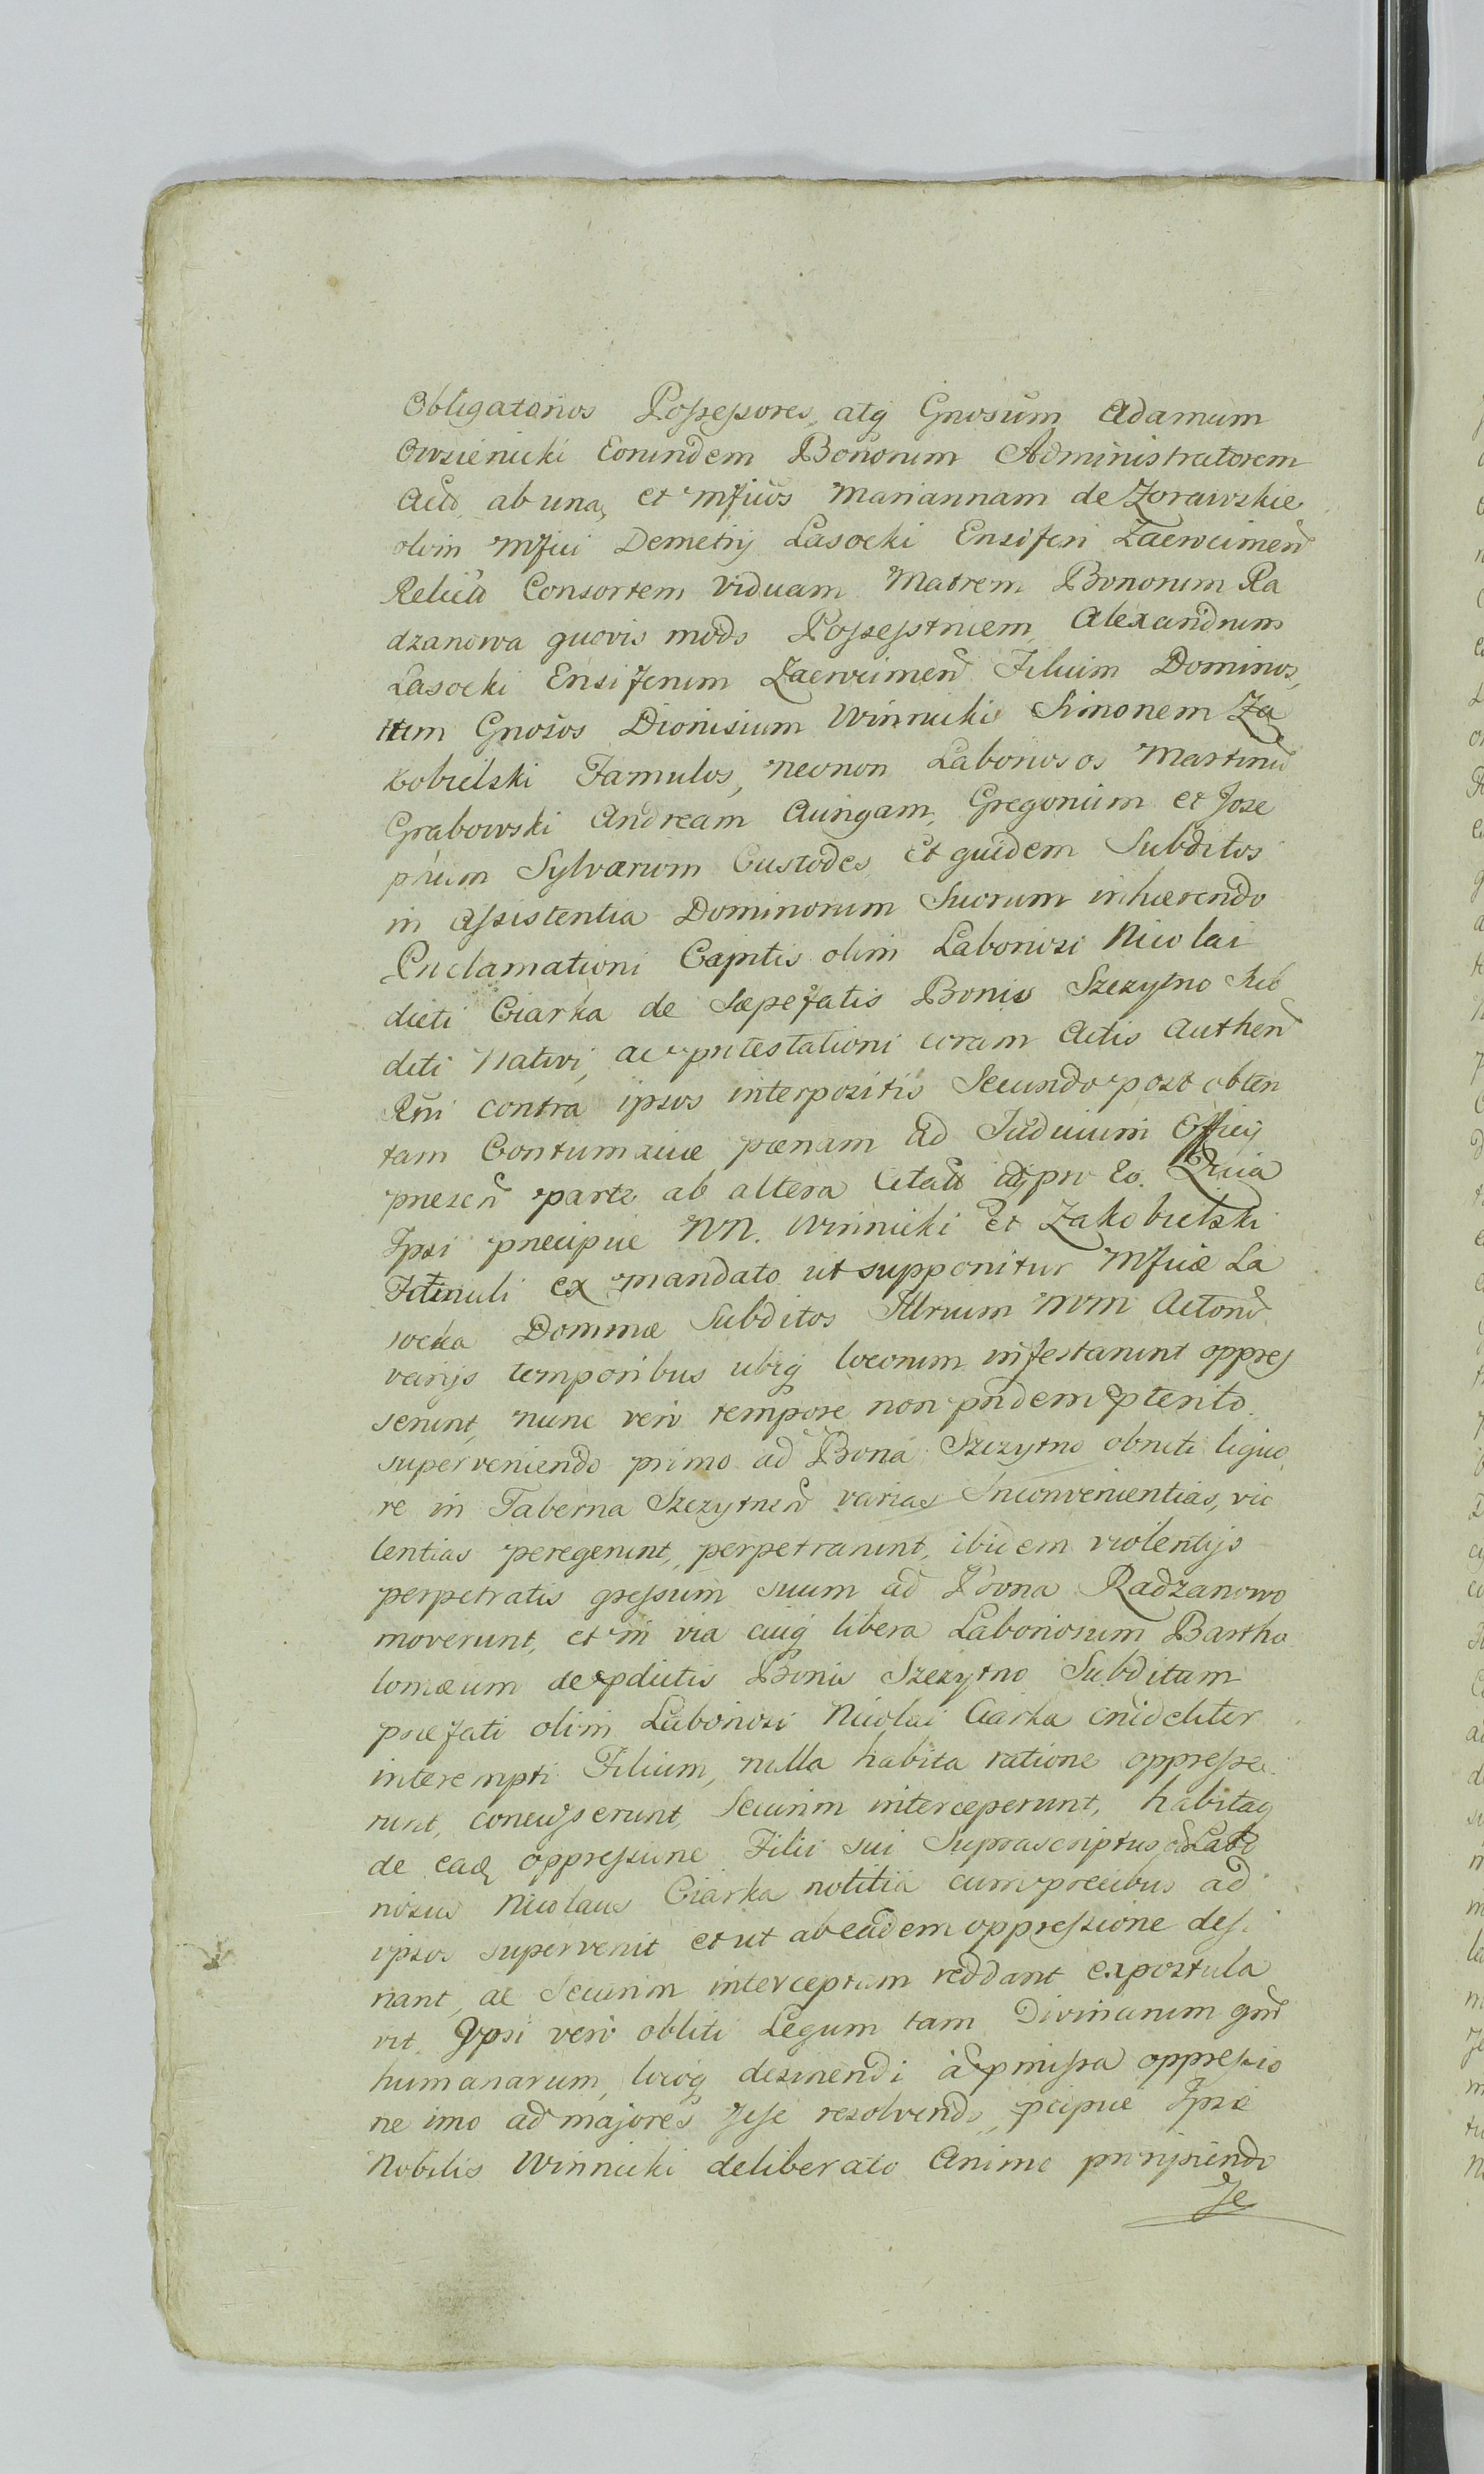 Obligatorios Possessores, atq Gnosum Adamum
Owsienicki Eorundem Bonorum Administratorem
Actō, ab una, et Mficōs Mariannam de Zorawskie
olim Mfici Demetrij Lasocki Ensiferi Zacrocimen
Relictā Consortem Viduam Matrem Bonorum Ra
dzanowa quovis modo Possestricem, Alexandrum
Lasocki Ensiferum Zacrocimen Filium Dominos,
tum Gnosos Dionisium Winnicki Simonem Za
kobielski Famulos, necnon Laboriosos Martinū
Grabowski Andream Aurigam, Gregorium et Jose
phum Sylvarum Custodes, et quidem Subditos
in Assistentia Dominorum Suorum inhærendo
Proclamationi Capitis olim Laboriosi Nicolai
dicti Ciarka de Sæpefatis Bonis Szczytno Sub
diti Nativi, ac protestationi coram Actis Authen
Rni contra ipsos interpositis Secundo post obten
tam Contumaciæ pænam ad Judicium Officij
presen parte ab altera Citatt idq pro Eo. Quia
Ipsi precipue NN. Winnicki et Zakobielski
Famuli ex mandato ut supponitur Mficæ La
socka Dominæ Subditos Illrium MM Actorū
varijs temporibus ubiq locorum infestarunt oppres
serunt, nunc vero tempore non pridem præterito
superveniendo primo ad Bona Szczytno obruti liquo
re in Taberna Szczytnen varias Inconvenientias, vio
lentias peregerunt, perpetrarunt, ibidem violentijs
perpetratis gressum suum ad Bona Radzanowo
moverunt, et in via cuiq libera Laboriosum Bartho
lomæum de pdictis Bonis Szczytno Subditum
præfati olim Laboriosi Nicolai Ciarka crudeliter
interempti Filium, nulla habita ratione oppresse
runt, concusserunt, Securim interceperunt, habitaq
de eadē oppressione Filii sui Suprascriptus Labo
riosus Nicolaus Ciarka notitia cum precibus ad
ipsos supervenit et ut ab eadem oppressione desi
nant, ac Securim interceptam reddant expostula
vit. Ipsi vero obliti Legum tam Divinarum qm
humanarum, locoq desinendi à pmissa oppressio
ne imo ad majores sese resolvendo, pcipue Ipse
Nobilis Winnicki deliberato Animo proripiendo
Se